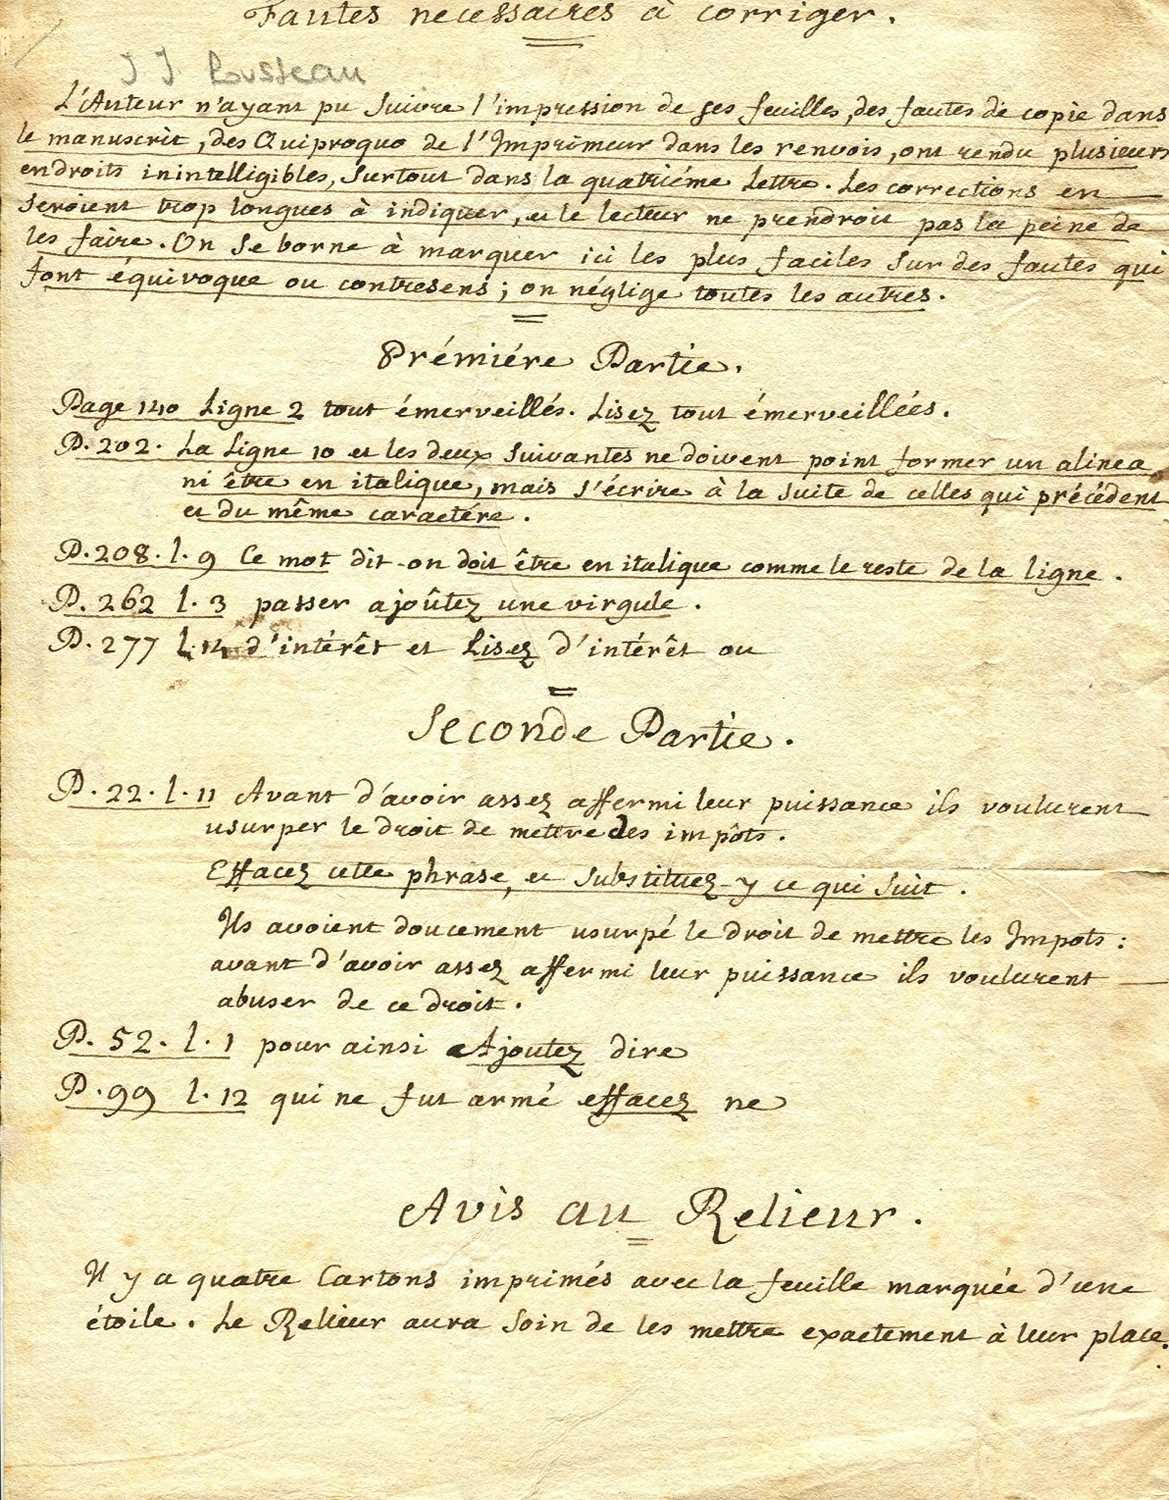 Fautes necessaires à corriger.
J J Rousseau
L'Auteur n'ayant pu suivre l'impression de ses feuilles, des fautes de copie dans
le manuscrit, des Quiproquo de l'Imprimeur dans les renvois, ont rendu plusieurs
endroits inintelligibles, surtout dans la quatriéme Lettre. Les corrections en
seroient trop longues à indiquer, et le lecteur ne prendroit pas la peine de
les faire. On se borne à marquer ici les plus faciles sur des fautes qui
font équivoque ou contresens; on néglige toutes les autres.
Prémiére Partie.
Page 140 Ligne 2 tout émerveillés. Lisez tout émerveillées.
P. 202. La Ligne 10 et les deux suivantes ne doivent point former un alinea
ni être en italique, mais s'écrire à la suite de celles qui précédent
et du même caractére.
P. 208. l. 9 Ce mot dit-on doit être en italique comme le reste de la ligne.
P. 262 l. 3 passer ajoûtez une virgule.
P. 277 l. 14 d'intérêt et Lisez d'intérêt ou
Seconde Partie.
P. 22. l. 11 Avant d'avoir assez affermi leur puissance ils voulurent
usurper le droit de mettre des impôts.
Effacez cette phrase, et substituez-y ce qui suit.
Ils avoient doucement usurpé le droit de mettre les Impots:
avant d'avoir assez affermi leur puissance ils voulurent
abuser de ce droit.
P. 52. l. 1 pour ainsi Ajoutez dire
P. 99 l. 12 qui ne fut armé effacez ne
Avis au Relieur.
Il y a quatre Cartons imprimés avec la feuille marquée d'une
étoile. Le Relieur aura soin de les mettre exactement à leur place.